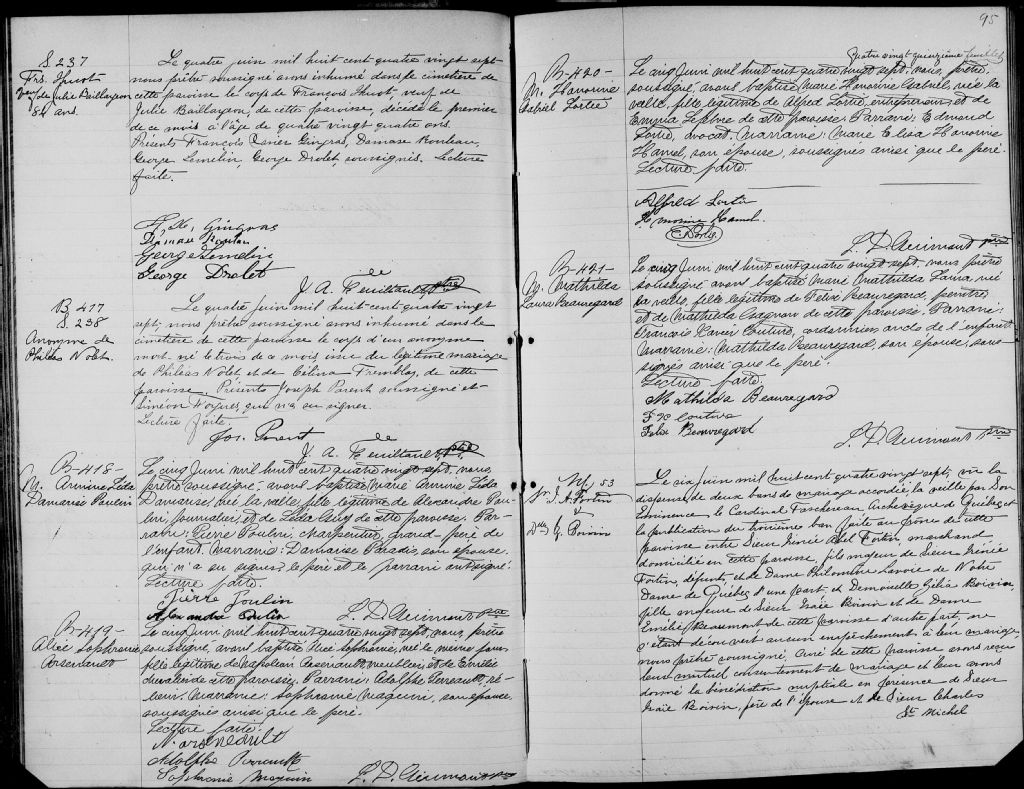 S 237
Frs. Huot
veuf de Julie Baillargeon
84 ans.
Le quatre juin mil huit cent quatre vingt sept
nous prêtre soussigné avons inhumé dans le cimetière de
cette paroisse le corps de François Huot, veuf de
Julie Baillargeon, de cette paroisse, décédé le premier
de ce mois à l'âge de quatre vingt quatre ans.
Présents François Gingras, Damase Rouleau,
George Lemelin George Drolet, soussignés. Lecture
faite.
F. X. Gingras
Damase Rouleau
George Lemelin
George Drolet
J. A. Feuiltault Ptre
B 417
S. 238
Anonyme de
Philéas Nolet.
Le quatre juin mil huit cent quatre vingt
sept, nous prêtre soussigné avons inhumé dans le
cimetière de cette paroisse le corps d'un anonyme
mort-né le trois de ce mois issu du légitime mariage
de Philéas Nolet et de Célina Tremblay, de cette
paroisse. Présents Joseph Parent soussigné et
Siméon qui n'a su signer.
Lecture faite.
Jos. Parent
J. A. Feuiltault Ptre
B-418-
M. Armine Lida
Damarise Poulin
Le cinq Juin mil huit cent quatre vingt sept, nous,
prêtre soussigné, avons baptisé Marie Armine Lida
Damarise, née la veille, fille légitime de Alexandre Pou-
lin, journalier, et de Léda Guy de cette paroisse. Par-
rain: Pierre Poulin, charpentier, grand-père de
l'enfant. Marraine: Damarise Paradis, son épouse
qui n'a su signer, le père et le parrain ont signé.
Lecture faite.
Pierre Poulin
Alexandre Poulin
L. D. Guimont Ptre
B-419-
Alice Sophranie
Arsenault
Le cinq Juin mil huit cent quatre vingt sept, nous, prêtre
soussigné, avons baptisé Alice Sophranie, née le même jour,
fille légitime de Napoléon Arsenault, meublier, et de Emélie
Duval de cette paroisse. Parrain: Adolphe Perreault, re-
lieur. Marraine: Sophranie Maguire, son épouse,
soussignés ainsi que le père.
Lecture faite.
N. Arseneault
Adolphe Perreault
Sophranie Maguire
L. D. Guimont Ptre
95
Quatre vingt quinzième feuillet
B-420-
M. Hanorine
Gabriel Lortie
Le cinq Juin mil huit cent quatre vingt sept, nous, prêtre,
soussigné, avons baptisé Marie Hanorine Gabriel, née la
veille, fille légitime de Alfred Lortie, entrepreneur, et de
Emma Lefebvre de cette paroisse. Parrain: Edmund
Lortie, avocat. Marraine: Marie Elisa Hanorine
Hamel, son épouse, soussignés ainsi que le père.
Lecture faite.
Alfred Lortie
Honorine Hamel.
E. Lortie
L. D. Guimont Ptre
B-421-
M. Mathilda
Laura Beauregard
Le cinq Juin mil huit cent quatre vingt sept, nous prêtre
soussigné avons baptisé Marie Mathilda Laura, née
la veille, fille légitime de Felix Beauregard, peintre,
et de Mathilda Gagnon de cette paroisse. Parrain:
François Xavier Couture, cordonnier, oncle de l'enfant.
Marraine: Mathilda Beauregard, son épouse, sous-
signés ainsi que le père.
Lecture faite.
Mathilda Beauregard
F X Couture
Felix Beauregard
L. D. Guimont Ptre
M 53
Sr. I. A. Fortin
&
Dlle G. Boivin
Le six Juin mil huit cent quatre vingt sept, vu la
dispense de deux bans de mariage accordée la veille par Son
Eminence le Cardinal Taschereau Archevêque de Québec et
la publication du troisième ban faite au prône de cette
paroisse entre Sieur Irénée Abel Fortin, marchand
domicilié en cette paroisse, fils majeur de Sieur Irénée
Fortin, défunt, et de Dame Philomène Lavoie de Notre
Dame de Québec d'une part, et Demoiselle Gélia Boivin,
fille majeure de Sieur Isaïe Boivin et de Dame
Emélie Beaumont de cette paroisse d'autre part, ne
s'étant découvert aucun empêchement à leur mariage,
nous prêtre soussigné, Curé de cette paroisse avons reçu
leur mutuel consentement de mariage et leur avons
donné la bénédiction nuptiale en présence de Sieur
Isaïe Boivin, père de l'épouse et de Sieur Charles
St. Michel